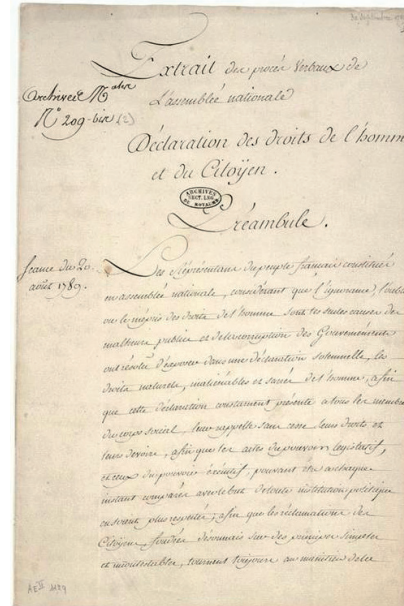 Extrait des procès Verbaux de
L'assemblée nationale
Archives N.ales
N.° 209-bis (2)
Déclaration des droits de l'homm
et du Citoÿen.
ARCHIVES
SECT. LEG.
DU ROYAUME
Préambule.
Séance du 20.
août 1789.
Les Réprésentans du peuple français constitués
en assemblée nationale, considerant que l'ignorance, l'oubli
ou le mépris des droits de l'homme sont les seules causes des
malheurs publics et de la corruption des Gouvernements
ont résolu d'exposer dans une déclaration solemnelle, les
droits naturels, inaliénables et sacrés de l'homme, afin
que cette déclaration constament présente à tous les membres
du corps social, leur rappelle sans cesse leurs droits et
leurs devoirs, afin que les actes du pouvoir législatif,
et ceux du pouvoir exécutif, pouvant être à chaque
instant comparés avec le but de toute institution politique
en soient plus respectés; afin que les réclamations des
Citoyens, fondées désormais sur des principes simples
et incontestables, tournent toujours au maintien de la
AE II 1129